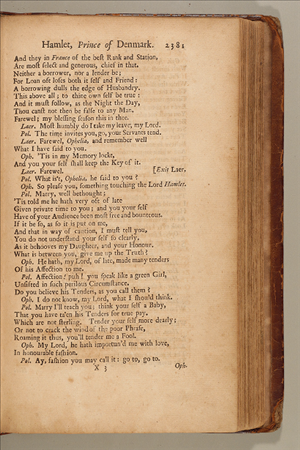 Hamlet, Prince of Denmark. 2381
And they in France of the best Rank and Station,
Are most select and generous, chief in that.
Neither a borrower, nor a lender be;
For Loan oft loses both it self and Friend:
A borrowing dulls the edge of Husbandry.
This above all; to thine own self be true:
And it must follow, as the Night the Day,
Thou canst not then be false to any Man.
Farewel; my blessing season this in thee.
Laer. Most humbly do I take my leave, my Lord.
Pol. The time invites you, go, your Servants tend.
Laer. Farewel, Ophelia, and remember well
What I have said to you.
Oph. 'Tis in my Memory lockt,
And you your self shall keep the Key of it.
Laer. Farewel. [Exit Laer.
Pol. What is't, Ophelia, he said to you?
Oph. So please you, something touching the Lord Hamlet.
Pol. Marry, well bethought;
'Tis told me he hath very oft of late
Given private time to you; and you your self
Have of your Audience been most free and bounteous.
If it be so, as so it is put on me,
And that in way of caution, I must tell you,
You do not understand your self so clearly,
As it behooves my Daughter, and your Honour.
What is between you, give me up the Truth?
Oph. He hath, my Lord, of late, made many tenders
Of his Affection to me.
Pol. Affection! puh! you speak like a green Girl,
Unsifted in such perilous Circumstance.
Do you believe his Tenders, as you call them?
Oph. I do not know, my Lord, what I should think.
Pol. Marry I'll teach you; think your self a Baby,
That you have ta'en his Tenders for true pay,
Which are not sterling. Tender your self more dearly;
Or not to crack the wind of the poor Phrase,
Roaming it thus, you'll tender me a Fool.
Oph. My Lord, he hath importun'd me with love,
In honourable fashion.
Pol. Ay, fashion you may call it: go to, go to.
X 3 Oph.